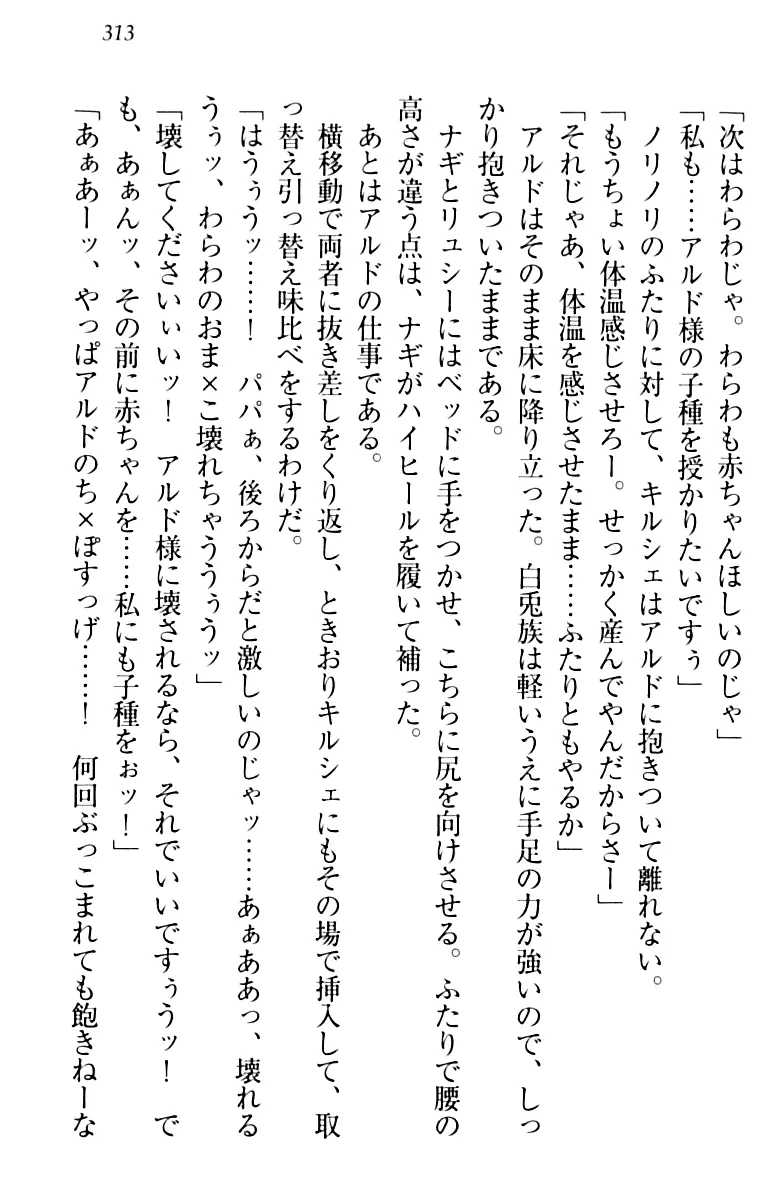 313
「次はわらわじゃ。わらわも赤ちゃんほしいのじゃ」
「私も……アルド様の子種を授かりたいですぅ」
ノリノリのふたりに対して、キルシェはアルドに抱きついて離れない。
「もうちょい体温感じさせろー。せっかく産んでやんだからさー」
「それじゃあ、体温を感じさせたまま……ふたりともやるか」
アルドはそのまま床に降り立った。白兎族は軽いうえに手足の力が強いので、しっ
かり抱きついたままである。
ナギとリュシーにはベッドに手をつかせ、こちらに尻を向けさせる。ふたりで腰の
高さが違う点は、ナギがハイヒールを履いて補った。
あとはアルドの仕事である。
横移動で両者に抜き差しをくり返し、ときおりキルシェにもその場で挿入して、取
っ替え引っ替え味比べをするわけだ。
「はうぅうッ……！　パパぁ、後ろからだと激しいのじゃッ……あぁああっ、壊れる
うぅッ、わらわのおま×こ壊れちゃううぅうッ」
「壊してくださいぃいッ！　アルド様に壊されるなら、それでいいですぅうッ！　で
も、あぁんッ、その前に赤ちゃんを……私にも子種をぉッ！」
「あぁあーッ、やっぱアルドのち×ぽすっげ……！　何回ぶっこまれても飽きねーな